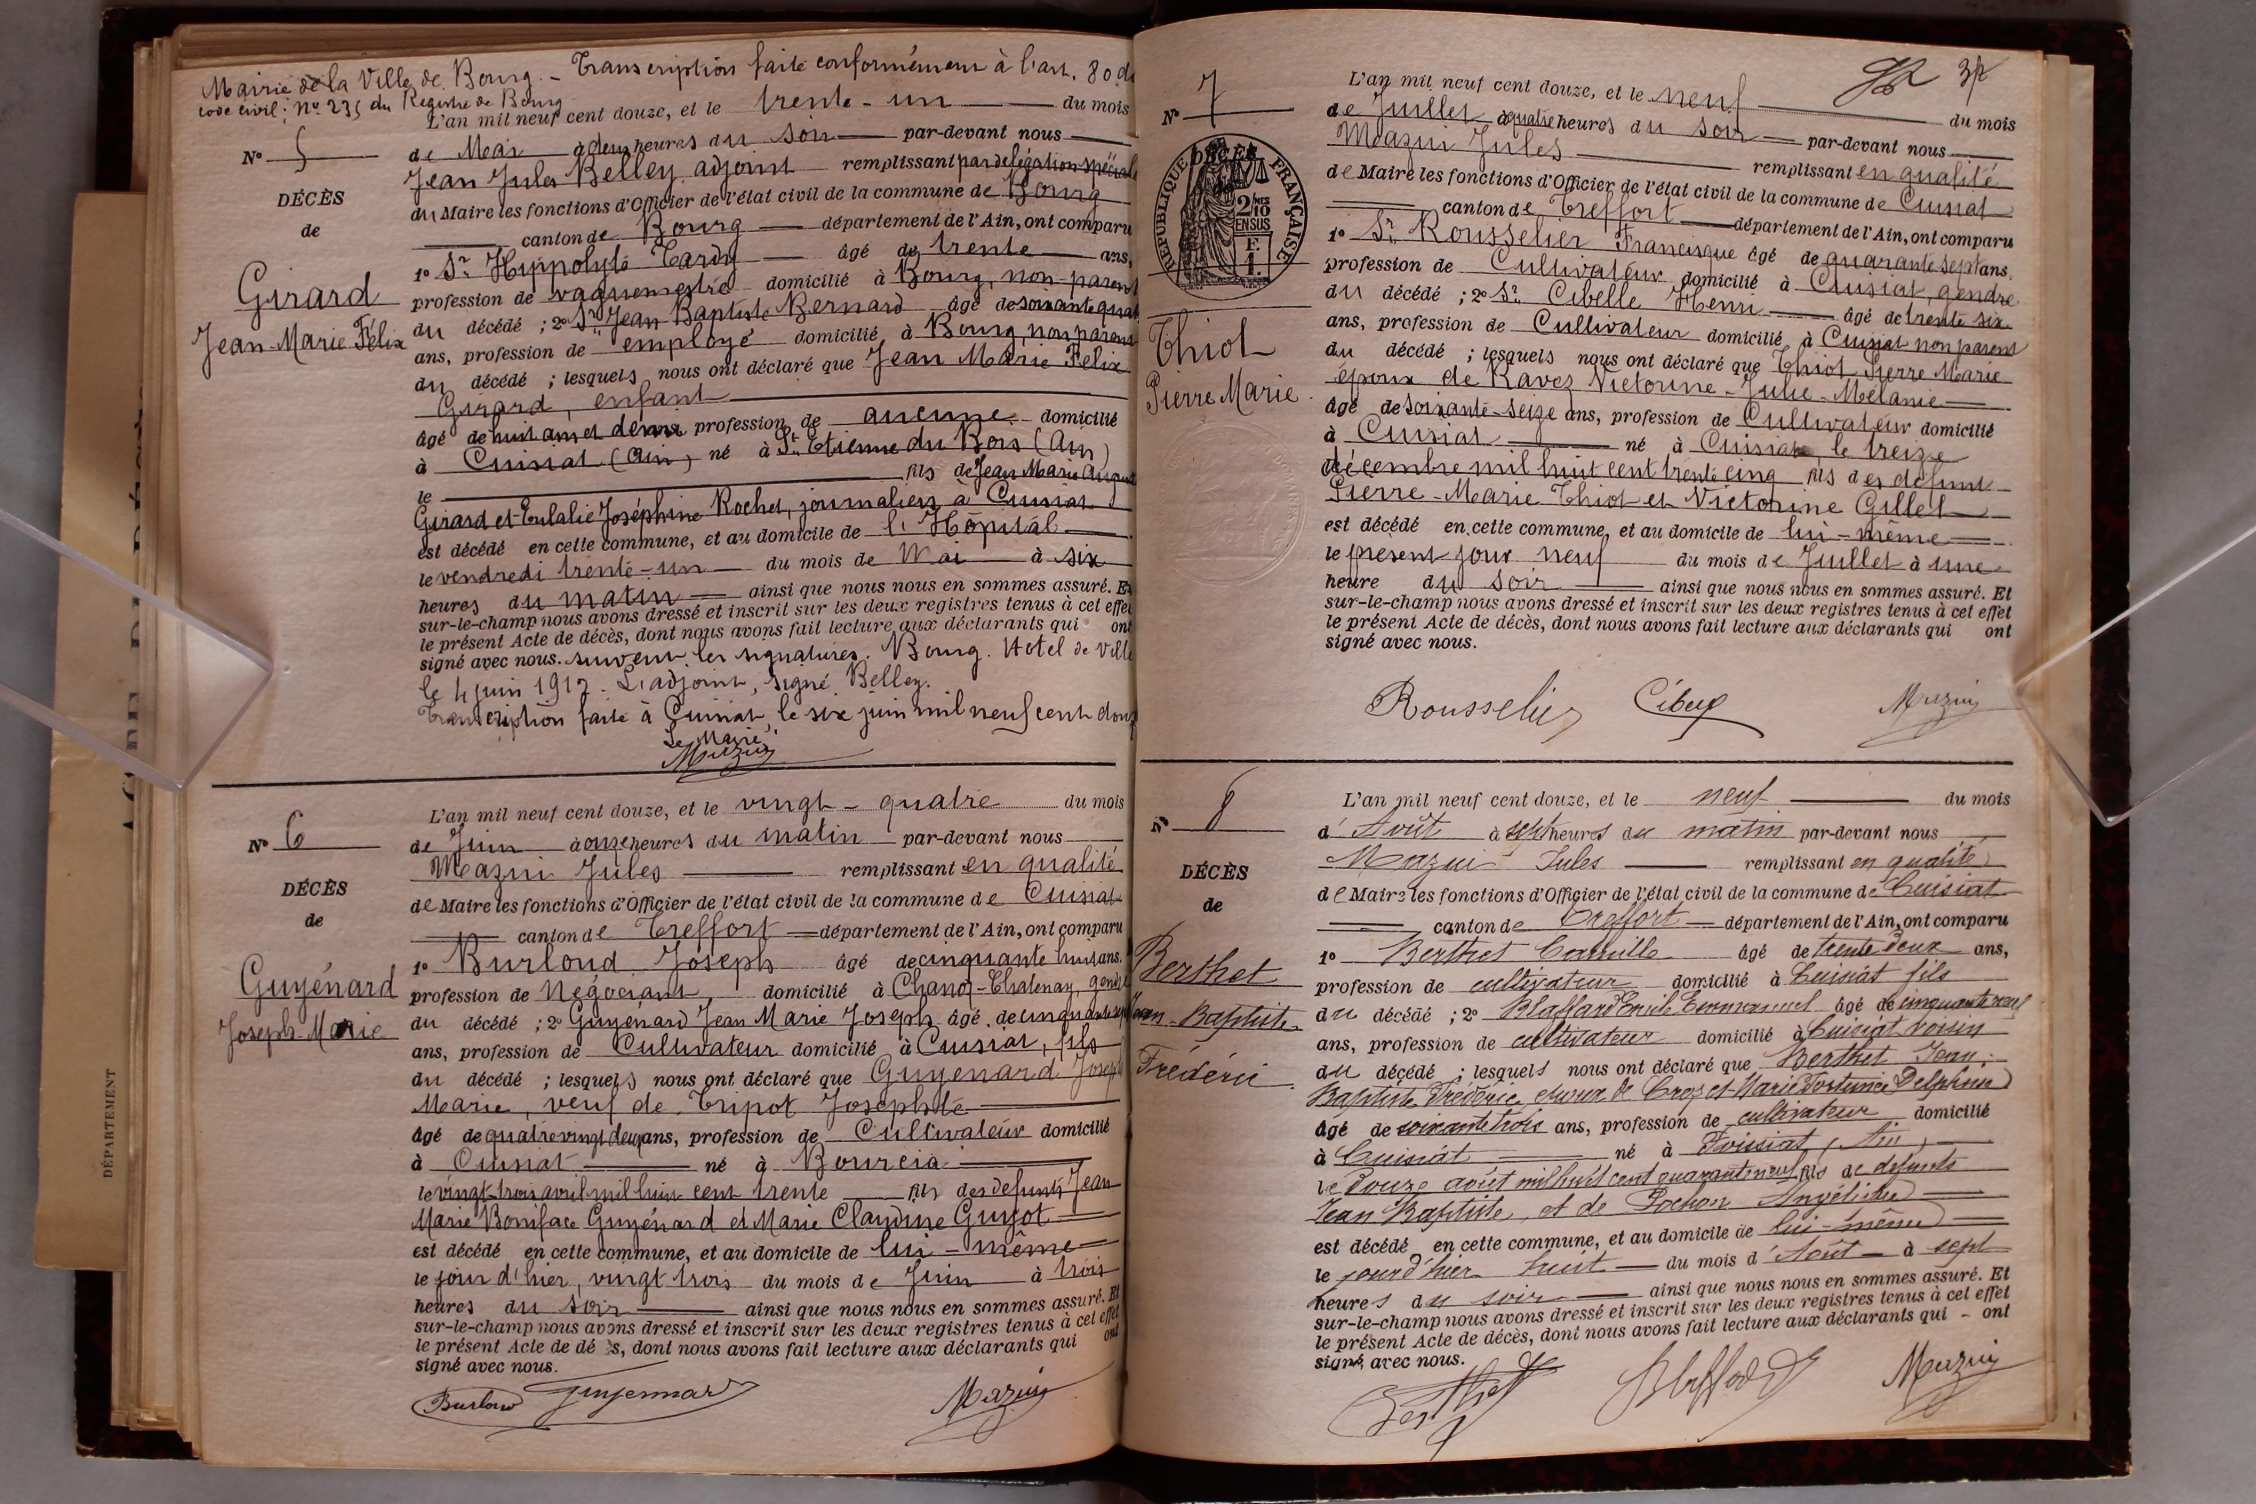 Mairie de la Ville de Bourg. - Transcription faite conformément à l'art. 80 du
code civil: N° 235 du Registre de Bourg
L'an mil neuf cent douze, et le trente-un du mois
N° 5
de Mai à deux heures du soir par-devant nous
Jean Jules Belley adjoint remplissant par délégation spéciale
DÉCÈS
du Maire les fonctions d'Officier de l'état civil de la commune de Bourg
de
canton de Bourg département de l'Ain, ont comparu
1° Sr Hyppolyte Tardy âgé de trente ans,
Girard
profession de vaguemestre domicilié à Bourg, non-parent
Jean-Marie Félix
du décédé ; 2° Sr Jean Baptiste Bernard âgé de soixante quatre
ans, profession de employé domicilié à Bourg, non parent
du décédé ; lesquels nous ont déclaré que Jean Marie Félix
Girard, enfant
âgé de huit ans et demi profession de aucune domicilié
à Cuisiat (Ain) né à St Etienne du Bois (Ain)
le fils de Jean Marie August
Girard et Eulalie Joséphine Rochet, journaliers à Cuisiat
est décédé en cette commune, et au domicile de l'Hôpital
le vendredi trente-un du mois de Mai à six
heures du matin ainsi que nous nous en sommes assuré. Et
sur-le-champ nous avons dressé et inscrit sur les deux registres tenus à cet effet
le présent Acte de décès, dont nous avons fait lecture aux déclarants qui ont
signé avec nous. suivent les signatures. Bourg. Hotel de Ville
le 4 juin 1912. L'adjoint, signé Belley.
Transcription faite à Cuisiat, le six juin mil neuf cent douze
Le Maire,
Mazuir
L'an mil neuf cent douze, et le vingt-quatre du mois
N° 6
de Juin à onze heures du matin par-devant nous
Mazuir Jules remplissant en qualité
DÉCÈS
de Maire les fonctions d'Officier de l'état civil de la commune de Cuisiat
de
canton de Treffort département de l'Ain, ont comparu
1° Burloud Joseph âgé de cinquante huit ans,
Guyénard
profession de Négociant, domicilié à Chanoz-Chatenay, gendre
Joseph-Marie
du décédé ; 2° Guyénard Jean Marie Joseph âgé de cinquante sept
ans, profession de Cultivateur domicilié à Cuisiat, fils
du décédé ; lesquels nous ont déclaré que Guyénard Joseph
Marie, veuf de Tripot Josephte
âgé de quatre vingt deux ans, profession de Cultivateur domicilié
à Cuisiat né à Bourcia
le vingt-trois avril mil huit cent trente fils des défunts Jean
Marie Boniface Guyénard et Marie Claudine Guyot
est décédé en cette commune, et au domicile de lui-même
le jour d'hier, vingt trois du mois de Juin à trois
heures du soir ainsi que nous nous en sommes assuré. Et
sur-le-champ nous avons dressé et inscrit sur les deux registres tenus à cet effet
le présent Acte de décès, dont nous avons fait lecture aux déclarants qui ont
signé avec nous.
Burloud Guyennard Mazuir
DÉPARTEMENT
L'an mil neuf cent douze, et le neuf du mois
N° 7
de Juillet à quatre heures du soir par-devant nous
Mazuir Jules remplissant en qualité
RÉPUBLIQUE FRANÇAISE
DÉCÈS
de
2/10 EN SUS
F. 1.
de Maire les fonctions d'Officier de l'état civil de la commune de Cuisiat
canton de Treffort département de l'Ain, ont comparu
1° Sr Rousselier Francisque âgé de quarante sept ans,
profession de Cultivateur domicilié à Cuisiat, gendre
du décédé ; 2° Sr Cibelle Henri âgé de trente six
Thiot
ans, profession de Cultivateur domicilié à Cuisiat non parent
Pierre Marie
du décédé ; lesquels nous ont déclaré que Thiot Pierre Marie
époux de Ravez Victorine-Julie-Mélanie
âgé de soixante-seize ans, profession de Cultivateur domicilié
à Cuisiat né à Cuisiat le treize
décembre mil huit cent trente cinq fils des défunts
Pierre-Marie Thiot et Victorine Gillet
est décédé en cette commune, et au domicile de lui-même
le présent jour neuf du mois de Juillet à une
heure du soir ainsi que nous nous en sommes assuré. Et
sur-le-champ nous avons dressé et inscrit sur les deux registres tenus à cet effet
le présent Acte de décès, dont nous avons fait lecture aux déclarants qui ont
signé avec nous.
Rousselier Mazuir
L'an mil neuf cent douze, et le neuf du mois
N° 8
d'Août à sept heures du matin par-devant nous
Mazuir Jules remplissant en qualité
DÉCÈS
de Maire les fonctions d'Officier de l'état civil de la commune de Cuisiat
de
canton de Treffort département de l'Ain, ont comparu
1° Berthet Camille âgé de trente deux ans,
Berthet
profession de cultivateur domicilié à Cuisiat fils
Jean-Baptiste
du décédé ; 2° Blaffard Emile Emmanuel âgé de cinquante neuf
ans, profession de cultivateur domicilié à Cuisiat voisin
Frédéric
du décédé ; lesquels nous ont déclaré que Berthet Jean-
Baptiste Frédéric époux de Crozet Marie Fortunée Delphine
âgé de soixante trois ans, profession de cultivateur domicilié
à Cuisiat né à Foissiat, Ain,
le douze août mil huit cent quarante neuf fils de défunts
Jean Baptiste, et de Pochon Angélique
est décédé en cette commune, et au domicile de lui-même
le jour d'hier huit du mois d'Août à sept
heures du soir ainsi que nous nous en sommes assuré. Et
sur-le-champ nous avons dressé et inscrit sur les deux registres tenus à cet effet
le présent Acte de décès, dont nous avons fait lecture aux déclarants qui ont
signé avec nous.
Berthet Blaffard Mazuir